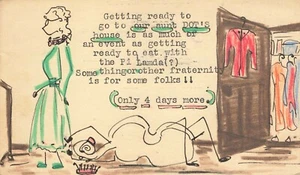 Getting ready to
go to our aunt DOT'S
house is as much of
an event as getting
ready to eat with
the Pi Lamda(?)
Somethingorother fraternity
is for some folks!!
(Only 4 days more)